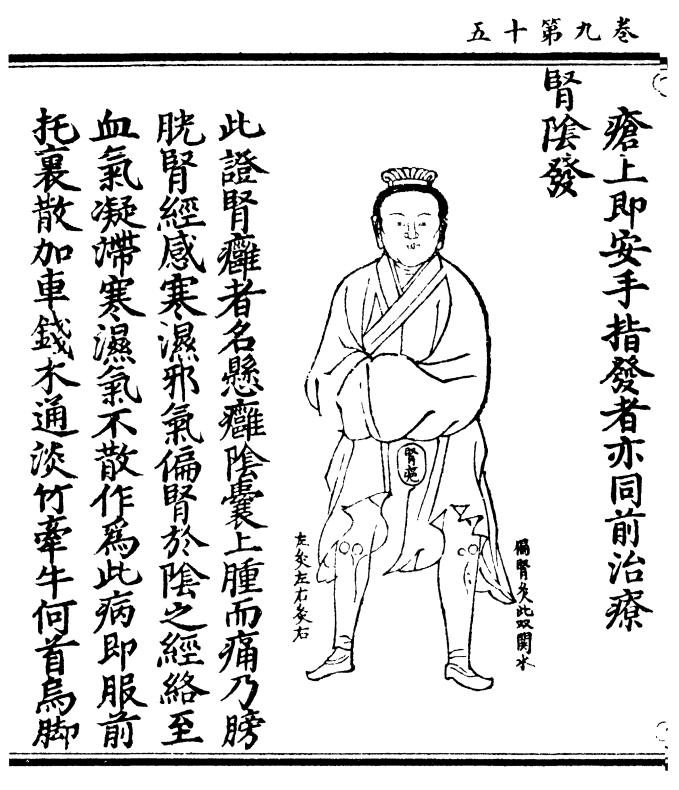 卷九第十五
瘡上即安手指發者亦同前治療
腎陰發
腎癰
偏腎灸此双関水
左灸左右灸右
此證腎癰者名懸癰陰囊上腫而痛乃膀
胱腎經感寒濕邪氣偏腎於陰之經絡至
血氣凝滯寒濕氣不散作為此病即服前
托裏散加車錢木通淡竹牽牛何首烏脚